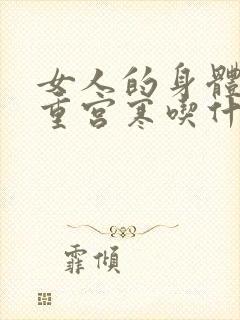 女人的身體
重宮寒喫什
霏傾